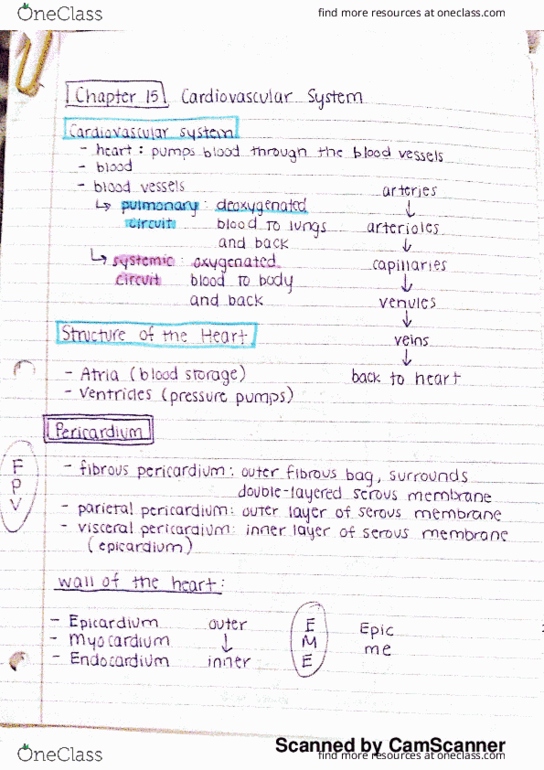 OneClass
find more resources at oneclass.com
Chapter 15 Cardiovascular System
Cardiovascular system
- heart : pumps blood through the blood vessels
- blood
- blood vessels
↳ pulmonary : deoxygenated
circuit blood to lungs
and back
↳ systemic : oxygenated
circuit blood to body
and back
arteries
↓
arterioles
↓
capillaries
↓
venules
↓
veins
↓
back to heart
Structure of the Heart
- Atria (blood storage)
- Ventricles (pressure pumps)
Pericardium
F
P
V
- fibrous pericardium : outer fibrous bag, surrounds
double-layered serous membrane
- parietal pericardium : outer layer of serous membrane
- visceral pericardium : inner layer of serous membrane
(epicardium)
Wall of the heart :
- Epicardium outer
- Myocardium ↓
- Endocardium inner
E
M
E
Epic
me
Scanned by CamScanner
OneClass
find more resources at oneclass.com